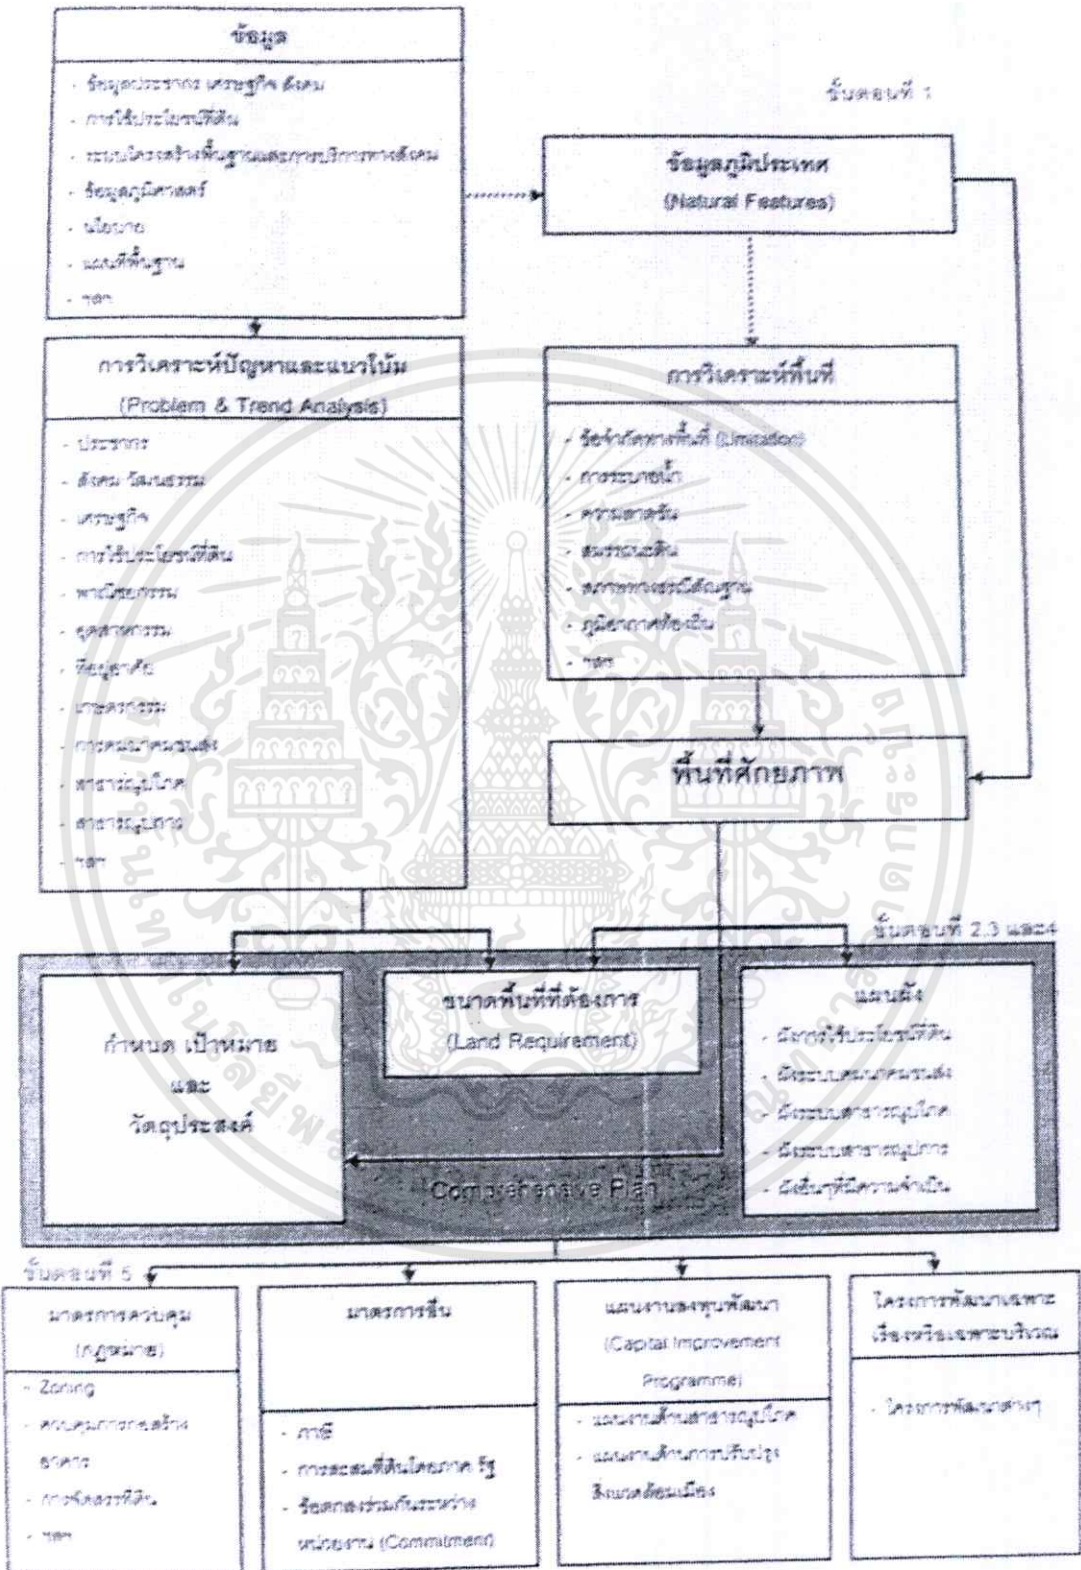 ข้อมูล
- ข้อมูลประชากร เศรษฐกิจ สังคม
- การใช้ประโยชน์ที่ดิน
- ระบบโครงสร้างพื้นฐานและการบริการทางสังคม
- ข้อมูลภูมิศาสตร์
- นโยบาย
- แผนที่พื้นฐาน
- ฯลฯ
ขั้นตอนที่ 1
ข้อมูลภูมิประเทศ
(Natural Features)
การวิเคราะห์ปัญหาและแนวโน้ม
(Problem & Trend Analysis)
- ประชากร
- สังคม วัฒนธรรม
- เศรษฐกิจ
- การใช้ประโยชน์ที่ดิน
- พาณิชยกรรม
- อุตสาหกรรม
- ที่อยู่อาศัย
- เกษตรกรรม
- การคมนาคมขนส่ง
- สาธารณูปโภค
- สาธารณูปการ
- ฯลฯ
การวิเคราะห์พื้นที่
- ข้อจำกัดทางพื้นที่ (Limitation)
- การระบายน้ำ
- ความลาดชัน
- สมรรถนะดิน
- สภาพทางธรณีสัณฐาน
- ภูมิอากาศท้องถิ่น
- ฯลฯ
พื้นที่ศักยภาพ
ขั้นตอนที่ 2,3 และ4
กำหนด เป้าหมาย
และ
วัตถุประสงค์
ขนาดพื้นที่ที่ต้องการ
(Land Requirement)
แผนผัง
- ผังการใช้ประโยชน์ที่ดิน
- ผังระบบคมนาคมขนส่ง
- ผังระบบสาธารณูปโภค
- ผังระบบสาธารณูปการ
- ผังอื่นๆที่มีความจำเป็น
Comprehensive Plan
ขั้นตอนที่ 5
มาตรการควบคุม
(กฎหมาย)
- Zoning
- ควบคุมการก่อสร้าง
อาคาร
- การจัดสรรที่ดิน
- ฯลฯ
มาตรการอื่น
- ภาษี
- การสะสมที่ดินโดยภาค รัฐ
- ข้อตกลงร่วมกันระหว่าง
หน่วยงาน (Commitment)
แผนงานลงทุนพัฒนา
(Capital Improvement
Programme)
- แผนงานด้านสาธารณูปโภค
- แผนงานด้านการปรับปรุง
สิ่งแวดล้อมเมือง
โครงการพัฒนาเฉพาะ
เรื่องหรือเฉพาะบริเวณ
- โครงการพัฒนาต่างๆ